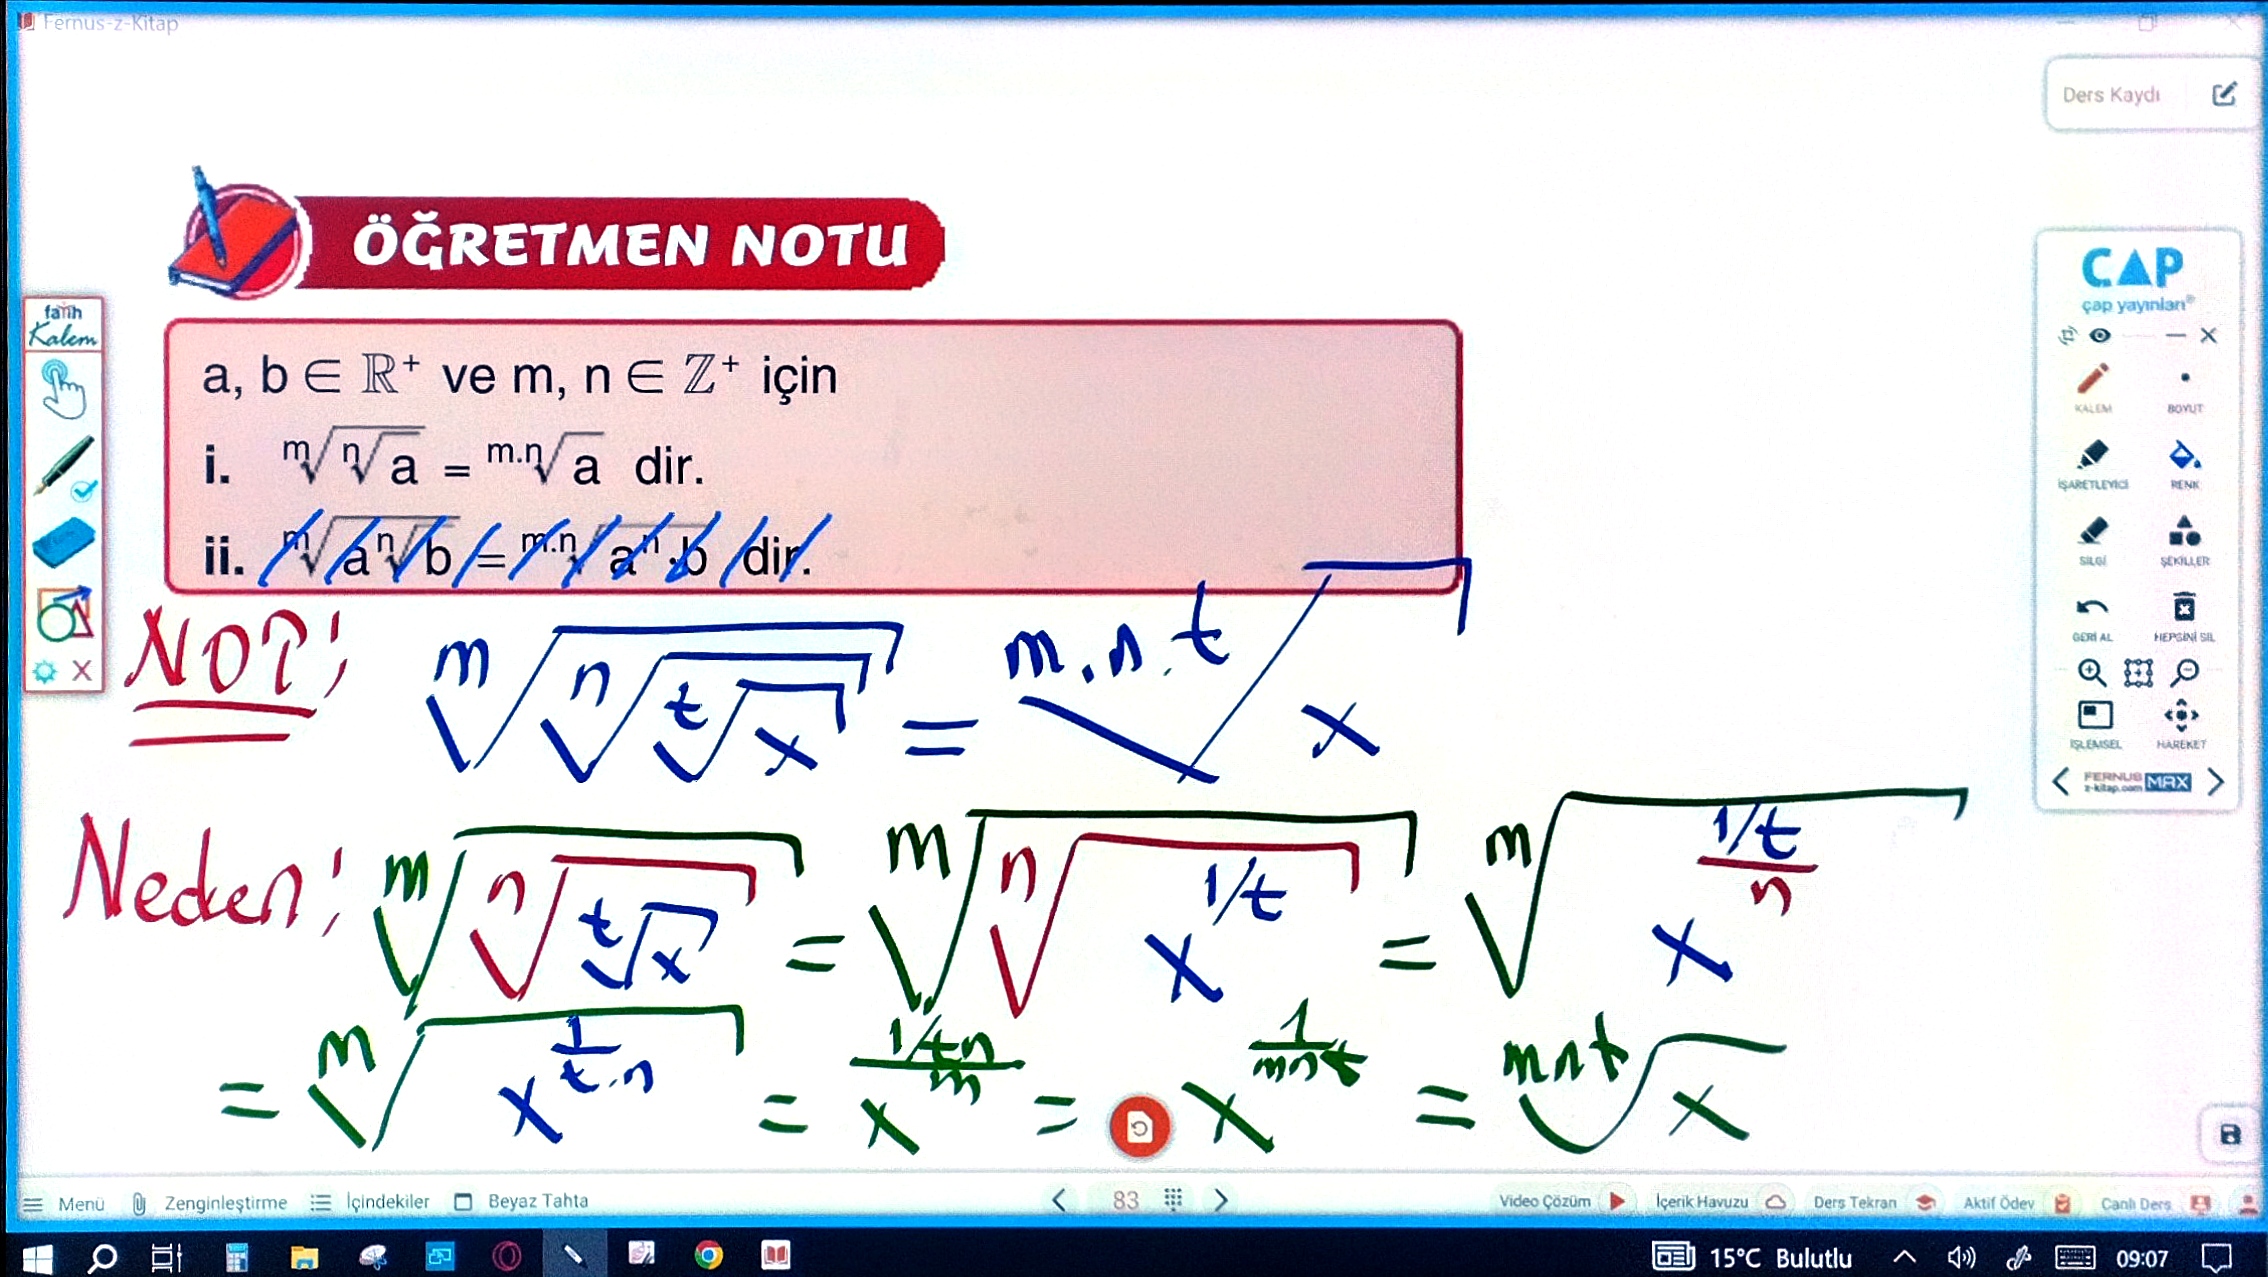 Fernus-z-Kitap
Ders Kaydı
ÖĞRETMEN NOTU
a, b ∈ ℝ⁺ ve m, n ∈ ℤ⁺ için
i. ᵐ√(ⁿ√a) = ᵐ·ⁿ√a dir.
ii. ᵐ√(a ⁿ√b) = ᵐ·ⁿ√(aⁿ·b) dir.
NOT: ᵐ√(ⁿ√(ᵗ√x)) = ᵐ·ⁿ·ᵗ√x
Neden: ᵐ√(ⁿ√(ᵗ√x)) = ᵐ√(ⁿ√(x^(1/t))) = ᵐ√(x^((1/t)/n))
= ᵐ√(x^(1/(t·n))) = x^((1/tn)/m) = x^(1/(mnt)) = ᵐⁿᵗ√x
fatih
Kalem
ÇAP
çap yayınları®
KALEM BOYUT
İŞARETLEYİCİ RENK
SİLGİ ŞEKİLLER
GERİ AL HEPSİNİ SİL
İŞLEMSEL HAREKET
FERNUS MAX
z-kitap.com
Menü Zenginleştirme İçindekiler Beyaz Tahta 83 Video Çözüm İçerik Havuzu Ders Tekran Aktif Ödev Canlı Ders
15°C Bulutlu 09:07